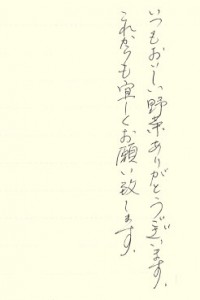 いつもおいしい野菜ありがとうございます。
これからも宜しくお願い致します。